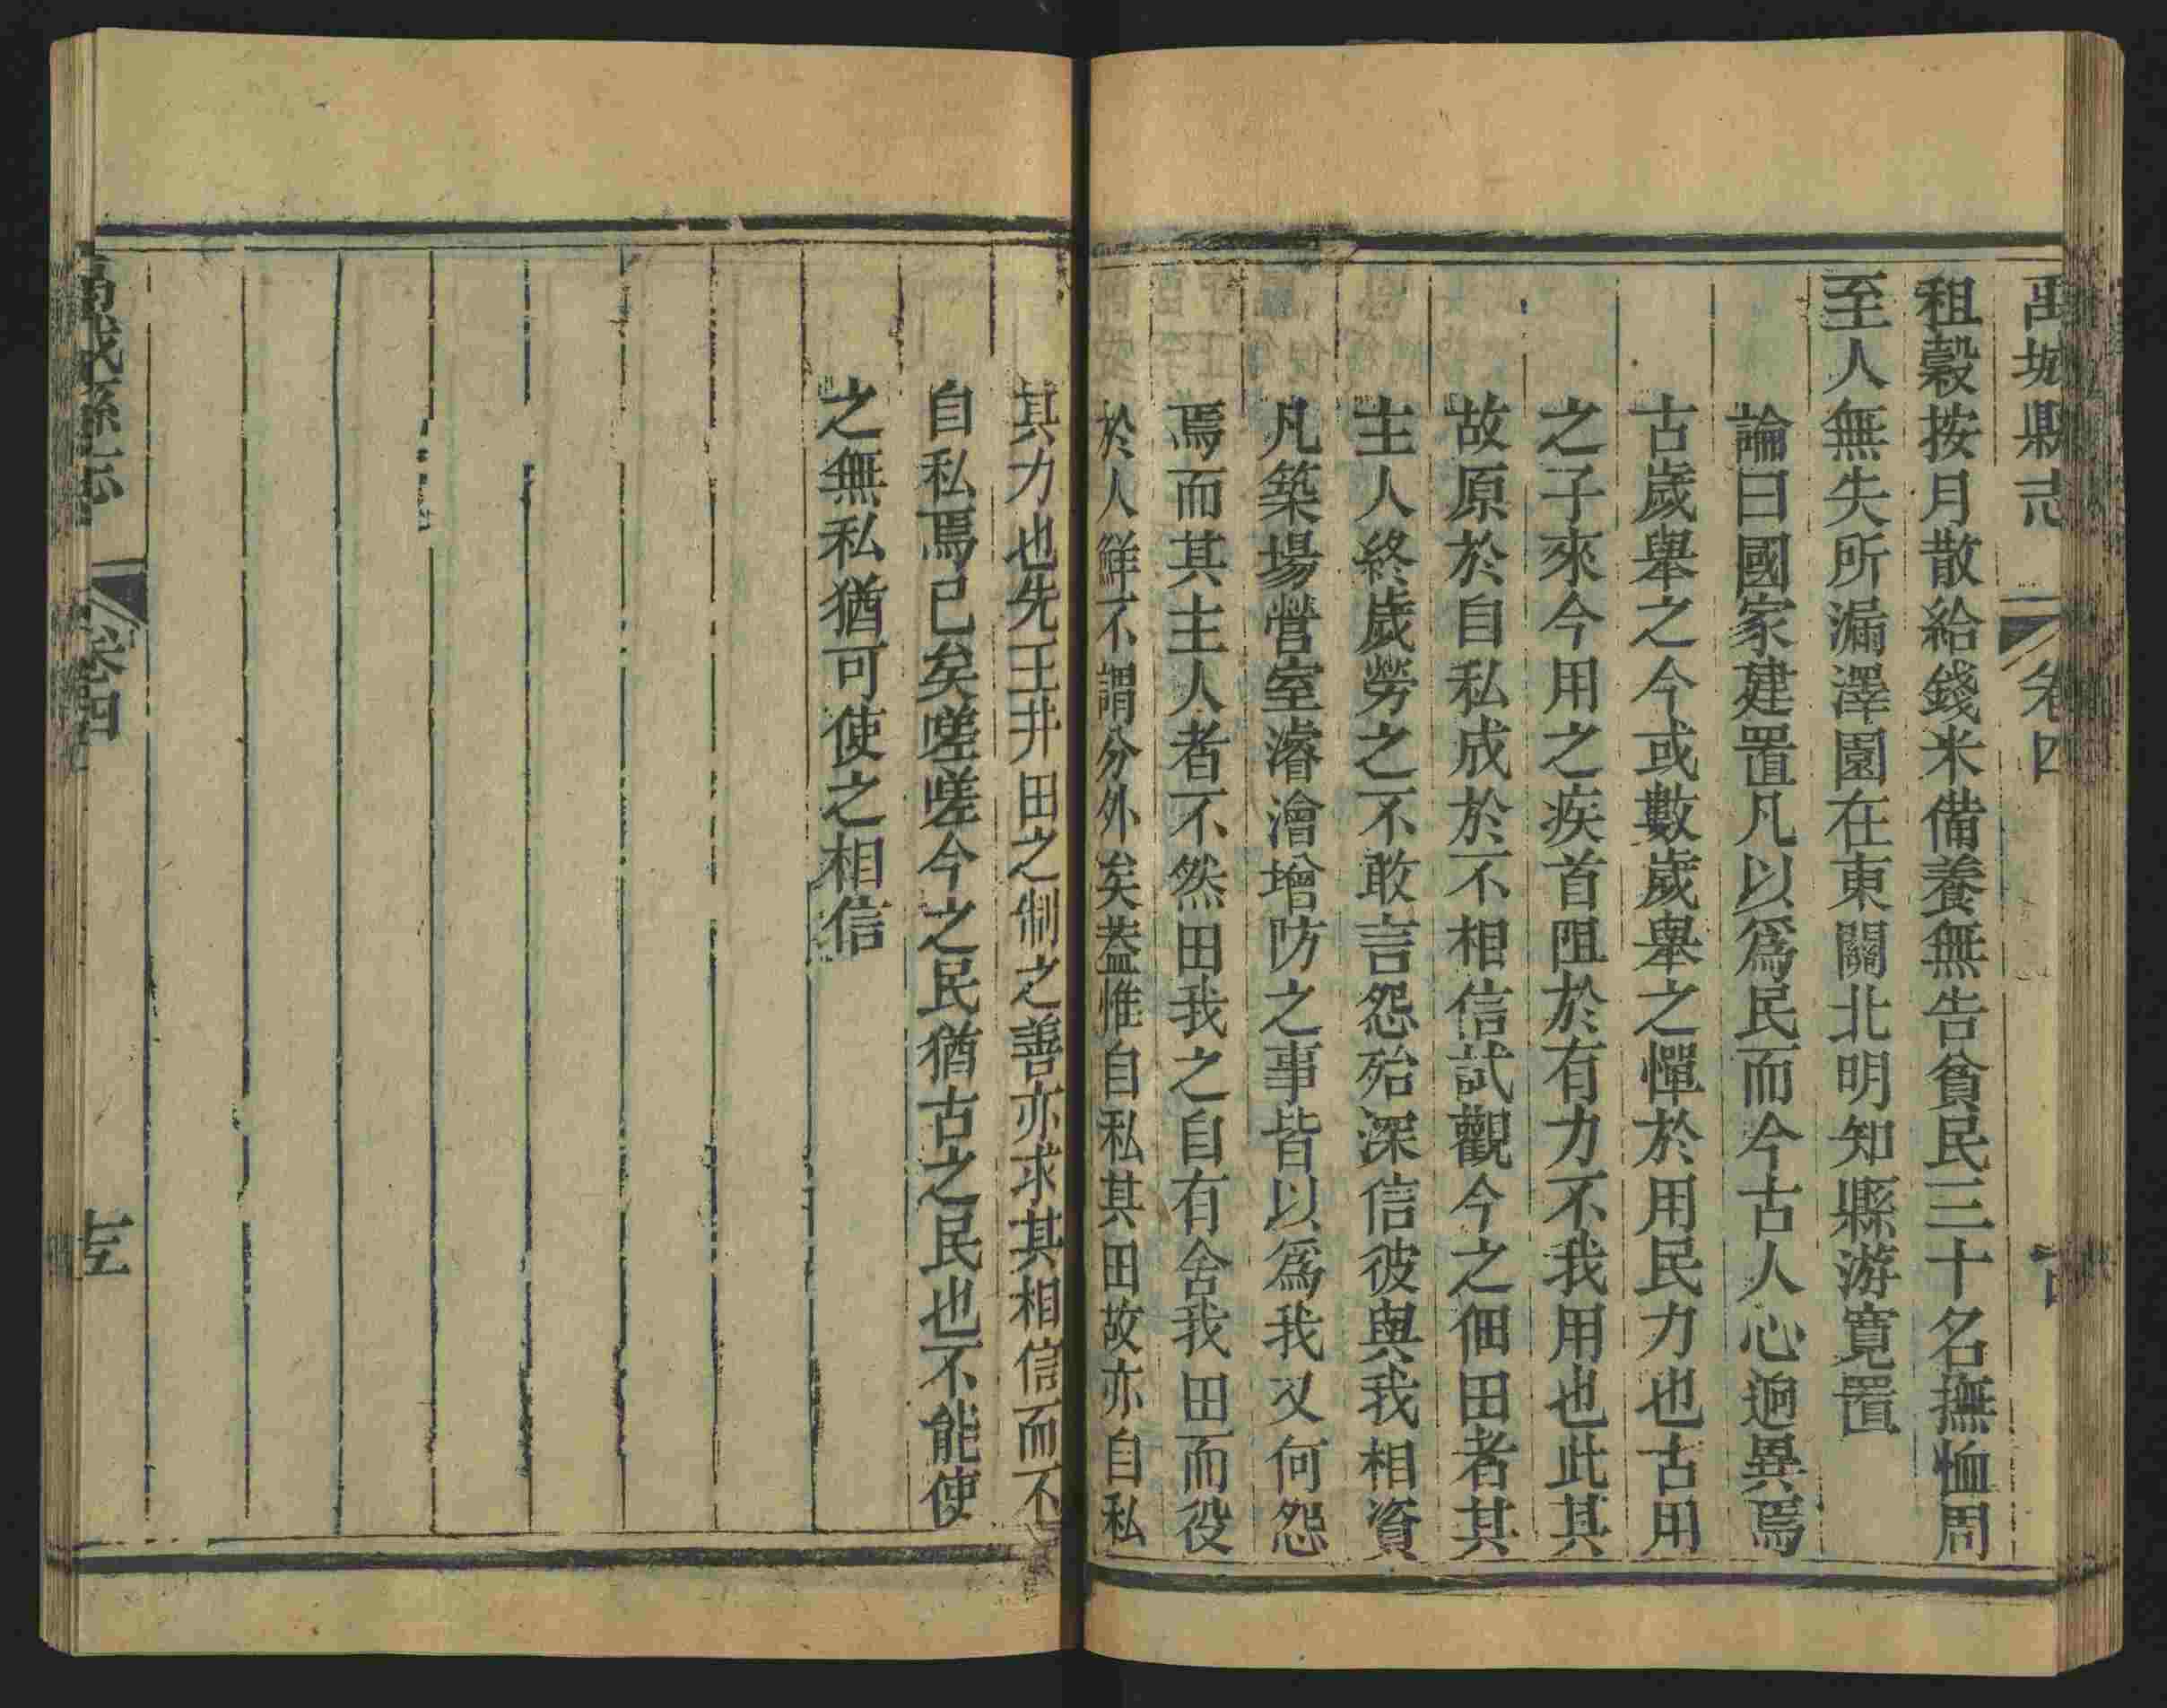 禹城縣志 卷四
租穀按月散給錢米備養無告貧民三十名撫恤周
至人無失所漏澤園在東關北明知縣游寬置
論曰國家建置凡以爲民而今古人心逈異焉
古歲舉之今或數歲舉之憚於用民力也古用
之子來今用之疾首阻於有力不我用也此其
故原於自私成於不相信試觀今之佃田者其
主人終歲勞之不敢言怨殆深信彼與我相資
凡築場營室濬澮增防之事皆以爲我又何怨
焉而其主人者不然田我之自有舍我田而役
於人鮮不謂分外矣蓋惟自私其田故亦自私
其力也先王井田之制之善亦求其相信而不
自私焉已矣嗟嗟今之民猶古之民也不能使
之無私猶可使之相信
禹城縣志 卷四